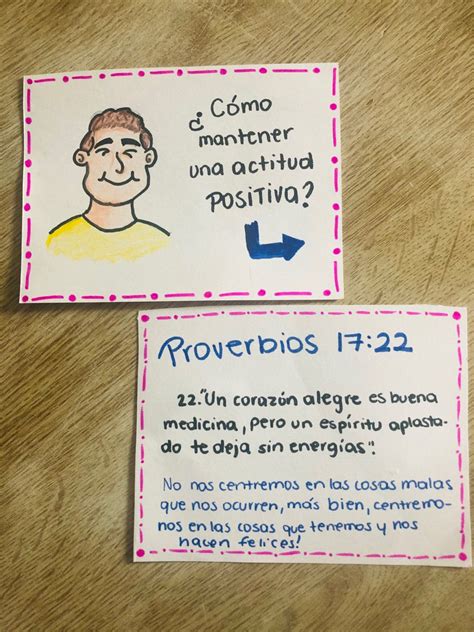 ¿Cómo
mantener
una actitud
POSITIVA?
Proverbios 17:22
22."Un corazón alegre es buena
medicina, pero un espíritu aplasta-
do te deja sin energías".
No nos centremos en las cosas malas
que nos ocurren, más bien, centremo-
nos en las cosas que tenemos y nos
hacen felices!